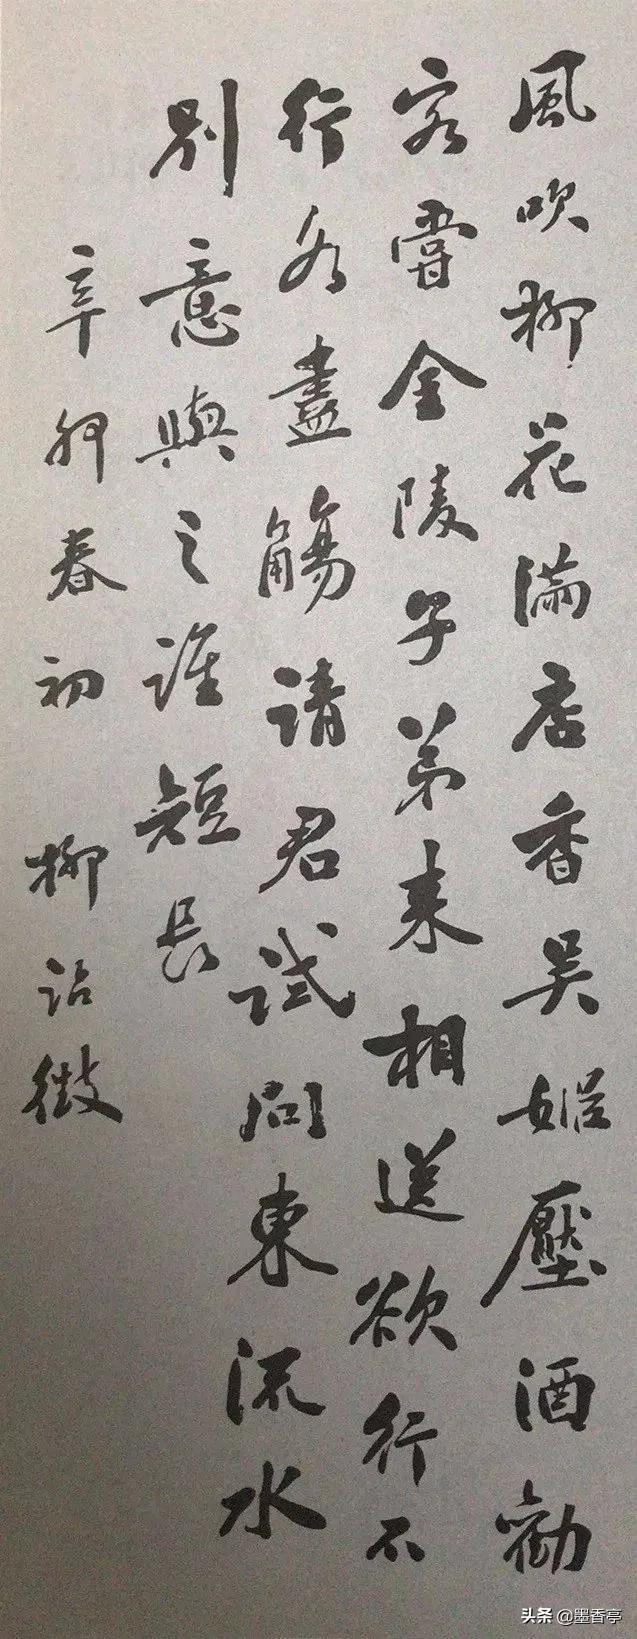 風吹柳花滿店香吳姬壓酒勸
客嘗金陵子弟来相送欲行不
行各盡觴請君試問東流水
別意與之誰短長
辛卯春初 柳詒徵
头条 @墨香亭